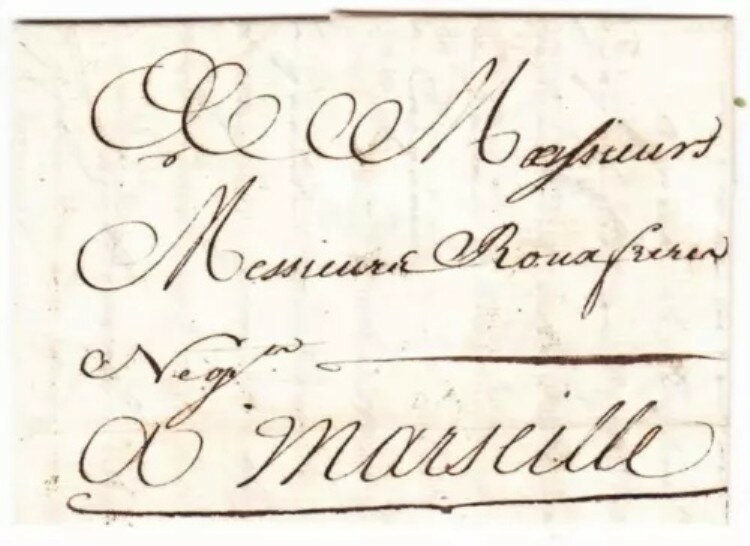 A Messieurs
Messieurs Roux freres
Negts
a Marseille